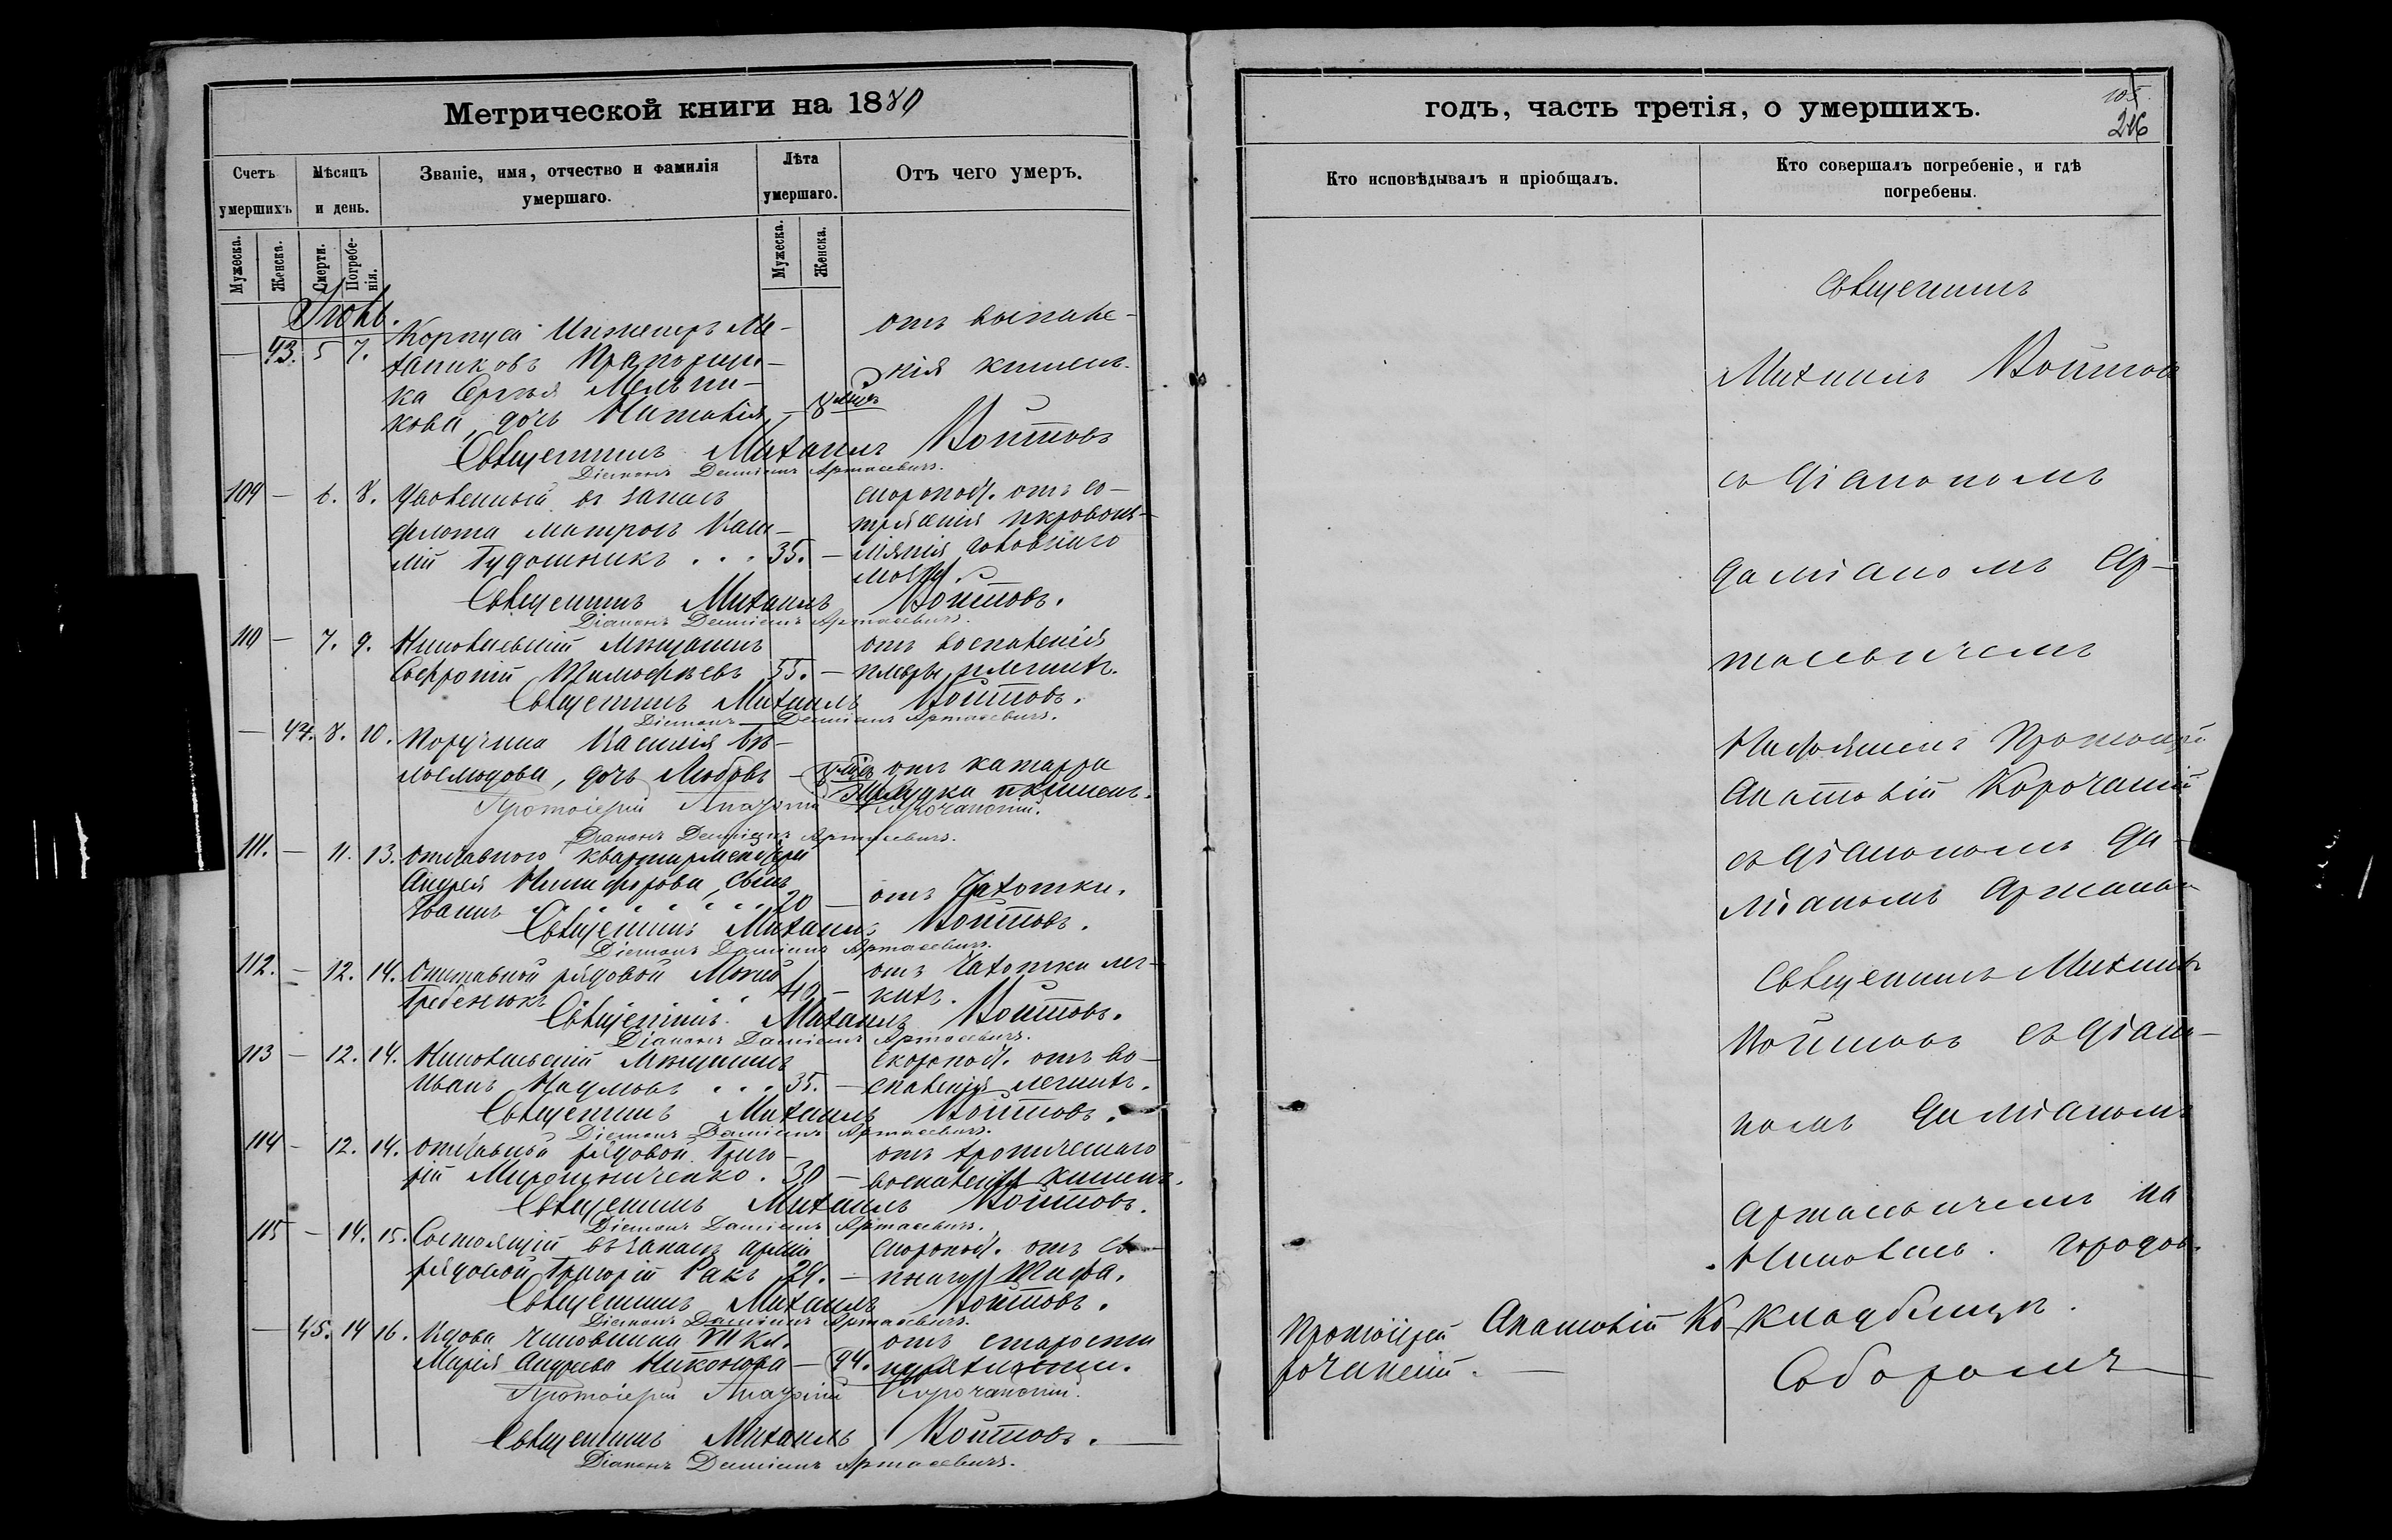 Метрической книги на 1880
Счетъ умершихъ
Мѣсяцъ и день.
Званіе, имя, отчество и фамилія умершаго.
Лѣта умершаго.
Отъ чего умеръ.
Мужеска.
Женска.
Смерти.
Погребенія.
Мужеска.
Женска.
43. 5 7. Корпуса Инженеръ Ме-
ханиковъ Прапорщи-
ка Сергѣя Мельни-
кова, дочь Наталія
отъ воспале-
нія кишекъ.
Священникъ Михаилъ Войтовъ
Діаконъ Даміанъ Артасевичъ.
109 – 6. 8. Уволенный въ запасъ
флота матросъ
Гудошникъ . . . 35. –
скоропост. отъ со-
трясенія и кровоиз-
ліянія головнаго
мозга.
Священникъ Михаилъ Войтовъ.
Діаконъ Даміанъ Артасевичъ.
110 – 7. 9. Николаевскій мѣщанинъ
Софроній Тимофѣевъ 55. –
отъ воспаленія
плевры и легкихъ.
Священникъ Михаилъ Войтовъ.
Діаконъ Даміанъ Артасевичъ.
– 44. 8. 10. Поручика Василія Бѣ-
дочь Любовь –
отъ катарра
желудка и кишекъ.
Протоіерей Корочанскій.
Діаконъ Даміанъ Артасевичъ.
111. – 11. 13. отставного квартирмейстера
Андрея Никифорова, сынъ
Иванъ . . . . . . 20 –
отъ Чахотки.
Священникъ Михаилъ Войтовъ.
Діаконъ Даміанъ Артасевичъ.
112. – 12. 14. Отставной рядовой Моисей
Гребенюкъ 40 –
отъ Чахотки лег-
кихъ.
Священникъ Михаилъ Войтовъ.
Діаконъ Даміанъ Артасевичъ.
113 – 12. 14. Николаевскій мѣщанинъ
Иванъ Наумовъ . . . 35. –
Скоропост. отъ во-
спаленія легкихъ.
Священникъ Михаилъ Войтовъ.
Діаконъ Даміанъ Артасевичъ.
114 – 12. 14. отставной рядовой Григо-
рій Мирошниченко . 30 –
отъ хроническаго
воспаленія кишекъ.
Священникъ Михаилъ Войтовъ.
Діаконъ Даміанъ Артасевичъ.
115 – 14. 15. Состоящій въ запасѣ арміи
рядовой Григорій Ракъ 29. –
скоропост. отъ
тифа.
Священникъ Михаилъ Войтовъ.
Діаконъ Даміанъ Артасевичъ.
– 45. 14 16. Вдова чиновника VII кл.
Марія Андреева – 94.
отъ старости
Протоіерей Корочанскій.
Священникъ Михаилъ Войтовъ.
Діаконъ Даміанъ Артасевичъ.
годъ, часть третія, о умершихъ.
105.
Кто исповѣдывалъ и пріобщалъ.
Кто совершалъ погребеніе, и гдѣ погребены.
Священникъ
Михаилъ Войтов
съ Діакономъ
Даміаномъ Ар-
тасевичемъ
Протоіерей
Корочанскій
съ Діакономъ Да-
міаномъ
Священникъ Михаилъ
Войтовъ съ Діако-
номъ Даміаномъ
Артасевичемъ на
Николаев. городов.
кладбищѣ.
Протоіерей Ко-
рочанскій. –
Соборомъ